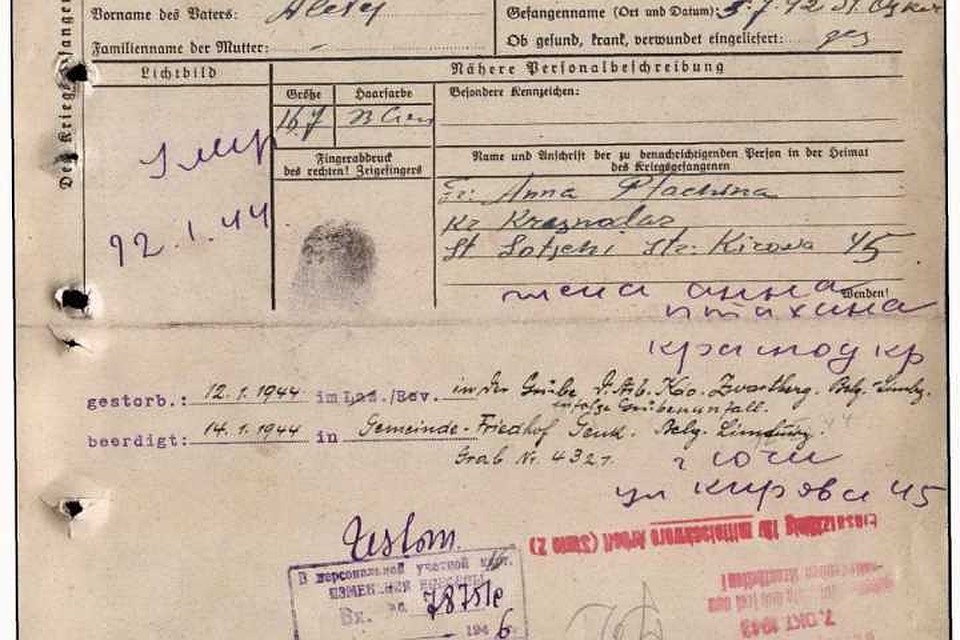 Vorname des Vaters: Alexej
Gefangenname (Ort und Datum): 5.7.42 St. Oskol
Familienname der Mutter: -
Ob gesund, krank, verwundet eingeliefert: ges
Des Kriegsgefangenen
Lichtbild
Nähere Personalbeschreibung
Größe
Haarfarbe
Besondere Kennzeichen:
167
Fingerabdruck
des rechten! Zeigefingers
Name und Anschrift der zu benachrichtigenden Person in der Heimat
des Kriegsgefangenen
Умер
12.1.44
Fr. Anna Ptachina
Kr Krasnodar
St Sotschi Str: Kirowa 45
Wenden!
жена анна
птахина
краснод кр
gestorb.: 12.1.1944 im Laz./Rev. in der Grube d. Arb. Kdo. Zwartberg. Belg. Limbg.
infolge Grubenunfall.
beerdigt: 14.1.1944 in Gemeinde-Friedhof Genk. Belg. Limburg.
Grab Nr. 4327.
г Сочи
ул кирова 45
Einsatzfähig für mittelschwere Arbeit (Stufe 2)
В персональной учетной карт.
ИЗМЕНЕНИЯ ВНЕСЕНЫ
Вх. № 78751е
1946.
7. OKT 1943